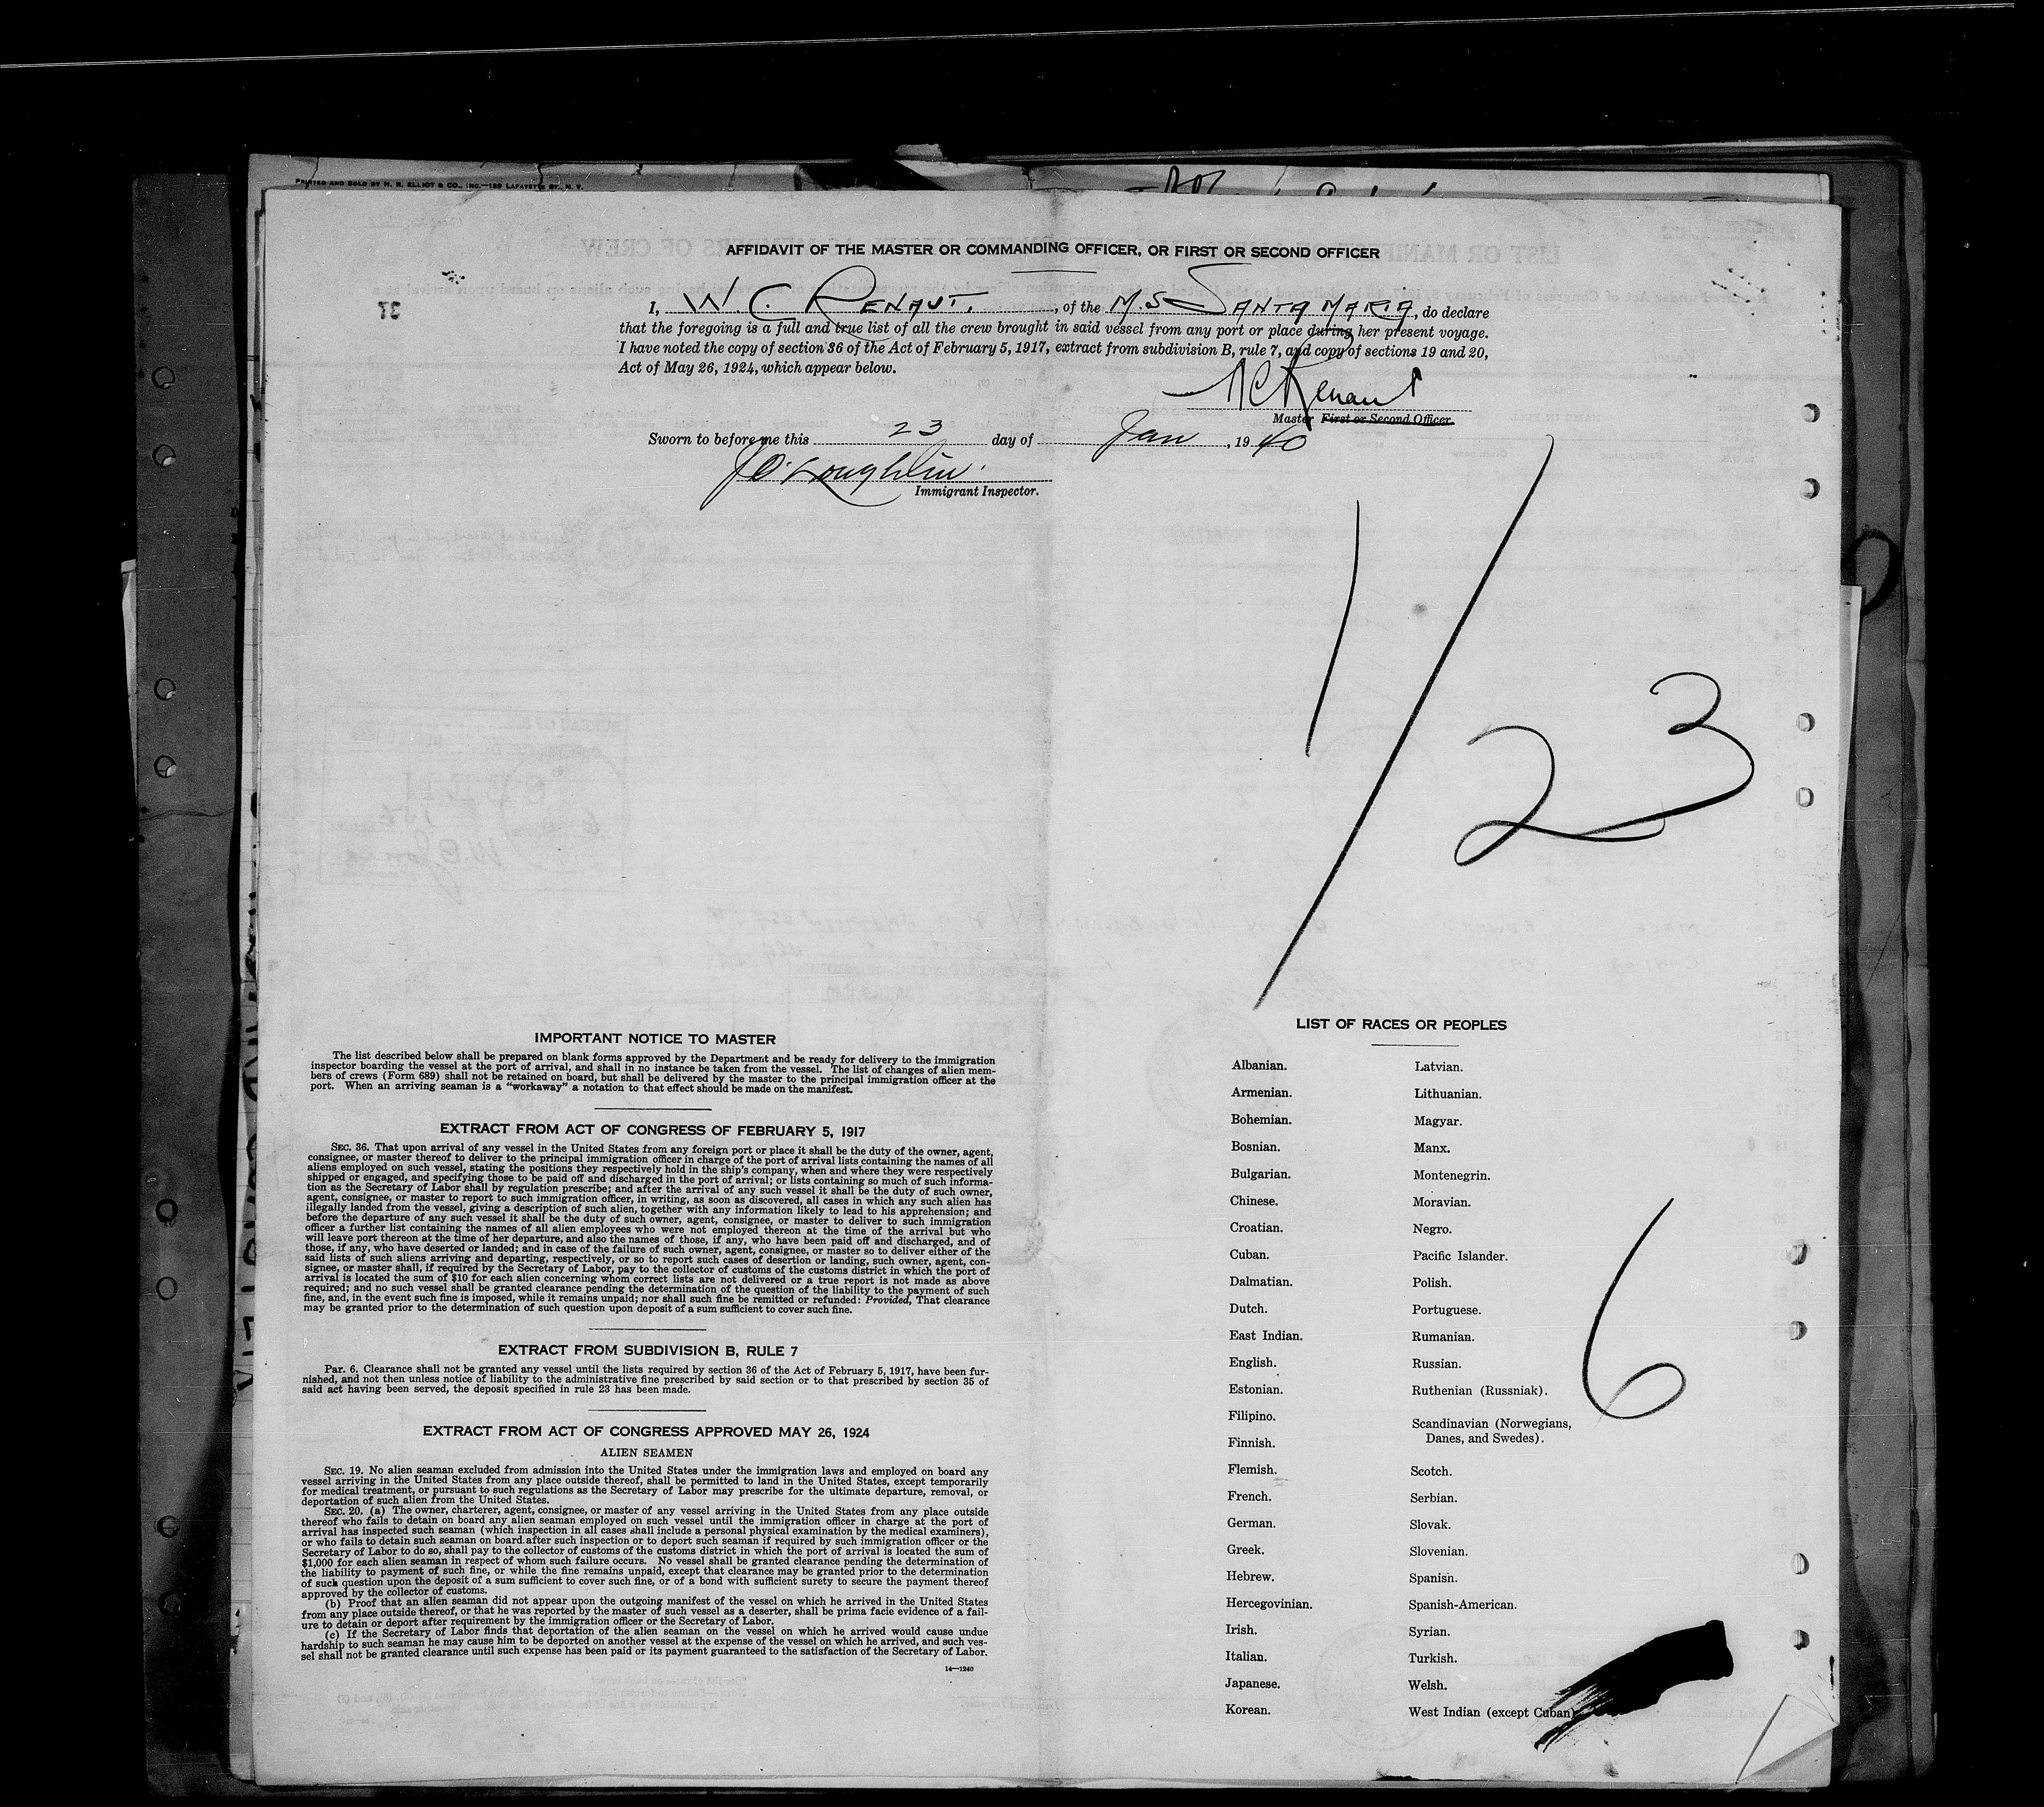 PRINTED AND SOLD BY N. R. ELLIOT & CO., INC.—129 LAFAYETTE ST., N. Y.
AFFIDAVIT OF THE MASTER OR COMMANDING OFFICER, OR FIRST OR SECOND OFFICER
37
I, W. C. RENAUT, of the M.S SANTA MARIA, do declare
that the foregoing is a full and true list of all the crew brought in said vessel from any port or place during her present voyage.
I have noted the copy of section 36 of the Act of February 5, 1917, extract from subdivision B, rule 7, and copy of sections 19 and 20,
Act of May 26, 1924, which appear below.
W C Renaut
Master First or Second Officer.
Sworn to before me this 23 day of Jan, 1940
J O'Loughlin
Immigrant Inspector.
1/23
IMPORTANT NOTICE TO MASTER
The list described below shall be prepared on blank forms approved by the Department and be ready for delivery to the immigration
inspector boarding the vessel at the port of arrival, and shall in no instance be taken from the vessel. The list of changes of alien mem-
bers of crews (Form 689) shall not be retained on board, but shall be delivered by the master to the principal immigration officer at the
port. When an arriving seaman is a "workaway" a notation to that effect should be made on the manifest.
EXTRACT FROM ACT OF CONGRESS OF FEBRUARY 5, 1917
SEC. 36. That upon arrival of any vessel in the United States from any foreign port or place it shall be the duty of the owner, agent,
consignee, or master thereof to deliver to the principal immigration officer in charge of the port of arrival lists containing the names of all
aliens employed on such vessel, stating the positions they respectively hold in the ship's company, when and where they were respectively
shipped or engaged, and specifying those to be paid off and discharged in the port of arrival; or lists containing so much of such informa-
tion as the Secretary of Labor shall by regulation prescribe; and after the arrival of any such vessel it shall be the duty of such owner,
agent, consignee, or master to report to such immigration officer, in writing, as soon as discovered, all cases in which any such alien has
illegally landed from the vessel, giving a description of such alien, together with any information likely to lead to his apprehension; and
before the departure of any such vessel it shall be the duty of such owner, agent, consignee, or master to deliver to such immigration
officer a further list containing the names of all alien employees who were not employed thereon at the time of the arrival but who
will leave port thereon at the time of her departure, and also the names of those, if any, who have been paid off and discharged, and of
those, if any, who have deserted or landed; and in case of the failure of such owner, agent, consignee, or master so to deliver either of the
said lists of such aliens arriving and departing, respectively, or so to report such cases of desertion or landing, such owner, agent, con-
signee, or master shall, if required by the Secretary of Labor, pay to the collector of customs of the customs district in which the port of
arrival is located the sum of $10 for each alien concerning whom correct lists are not delivered or a true report is not made as above
required; and no such vessel shall be granted clearance pending the determination of the question of the liability to the payment of such
fine, and, in the event such fine is imposed, while it remains unpaid; nor shall such fine be remitted or refunded: Provided, That clearance
may be granted prior to the determination of such question upon deposit of a sum sufficient to cover such fine.
EXTRACT FROM SUBDIVISION B, RULE 7
Par. 6. Clearance shall not be granted any vessel until the lists required by section 36 of the Act of February 5, 1917, have been fur-
nished, and not then unless notice of liability to the administrative fine prescribed by said section or to that prescribed by section 35 of
said act having been served, the deposit specified in rule 23 has been made.
EXTRACT FROM ACT OF CONGRESS APPROVED MAY 26, 1924
ALIEN SEAMEN
SEC. 19. No alien seaman excluded from admission into the United States under the immigration laws and employed on board any
vessel arriving in the United States from any place outside thereof, shall be permitted to land in the United States, except temporarily
for medical treatment, or pursuant to such regulations as the Secretary of Labor may prescribe for the ultimate departure, removal, or
deportation of such alien from the United States.
SEC. 20. (a) The owner, charterer, agent, consignee, or master of any vessel arriving in the United States from any place outside
thereof who fails to detain on board any alien seaman employed on such vessel until the immigration officer in charge at the port of
arrival has inspected such seaman (which inspection in all cases shall include a personal physical examination by the medical examiners),
or who fails to detain such seaman on board after such inspection or to deport such seaman if required by such immigration officer or the
Secretary of Labor to do so, shall pay to the collector of customs of the customs district in which the port of arrival is located the sum of
$1,000 for each alien seaman in respect of whom such failure occurs. No vessel shall be granted clearance pending the determination of
the liability to payment of such fine, or while the fine remains unpaid, except that clearance may be granted prior to the determination
of such question upon the deposit of a sum sufficient to cover such fine, or of a bond with sufficient surety to secure the payment thereof
approved by the collector of customs.
(b) Proof that an alien seaman did not appear upon the outgoing manifest of the vessel on which he arrived in the United States
from any place outside thereof, or that he was reported by the master of such vessel as a deserter, shall be prima facie evidence of a fail-
ure to detain or deport after requirement by the immigration officer or the Secretary of Labor.
(c) If the Secretary of Labor finds that deportation of the alien seaman on the vessel on which he arrived would cause undue
hardship to such seaman he may cause him to be deported on another vessel at the expense of the vessel on which he arrived, and such ves-
sel shall not be granted clearance until such expense has been paid or its payment guaranteed to the satisfaction of the Secretary of Labor.
14—1240
LIST OF RACES OR PEOPLES
Albanian.
Armenian.
Bohemian.
Bosnian.
Bulgarian.
Chinese.
Croatian.
Cuban.
Dalmatian.
Dutch.
East Indian.
English.
Estonian.
Filipino.
Finnish.
Flemish.
French.
German.
Greek.
Hebrew.
Hercegovinian.
Irish.
Italian.
Japanese.
Korean.
Latvian.
Lithuanian.
Magyar.
Manx.
Montenegrin.
Moravian.
Negro.
Pacific Islander.
Polish.
Portuguese.
Rumanian.
Russian.
Ruthenian (Russniak).
Scandinavian (Norwegians,
Danes, and Swedes).
Scotch.
Serbian.
Slovak.
Slovenian.
Spanish.
Spanish-American.
Syrian.
Turkish.
Welsh.
West Indian (except Cuban).
6